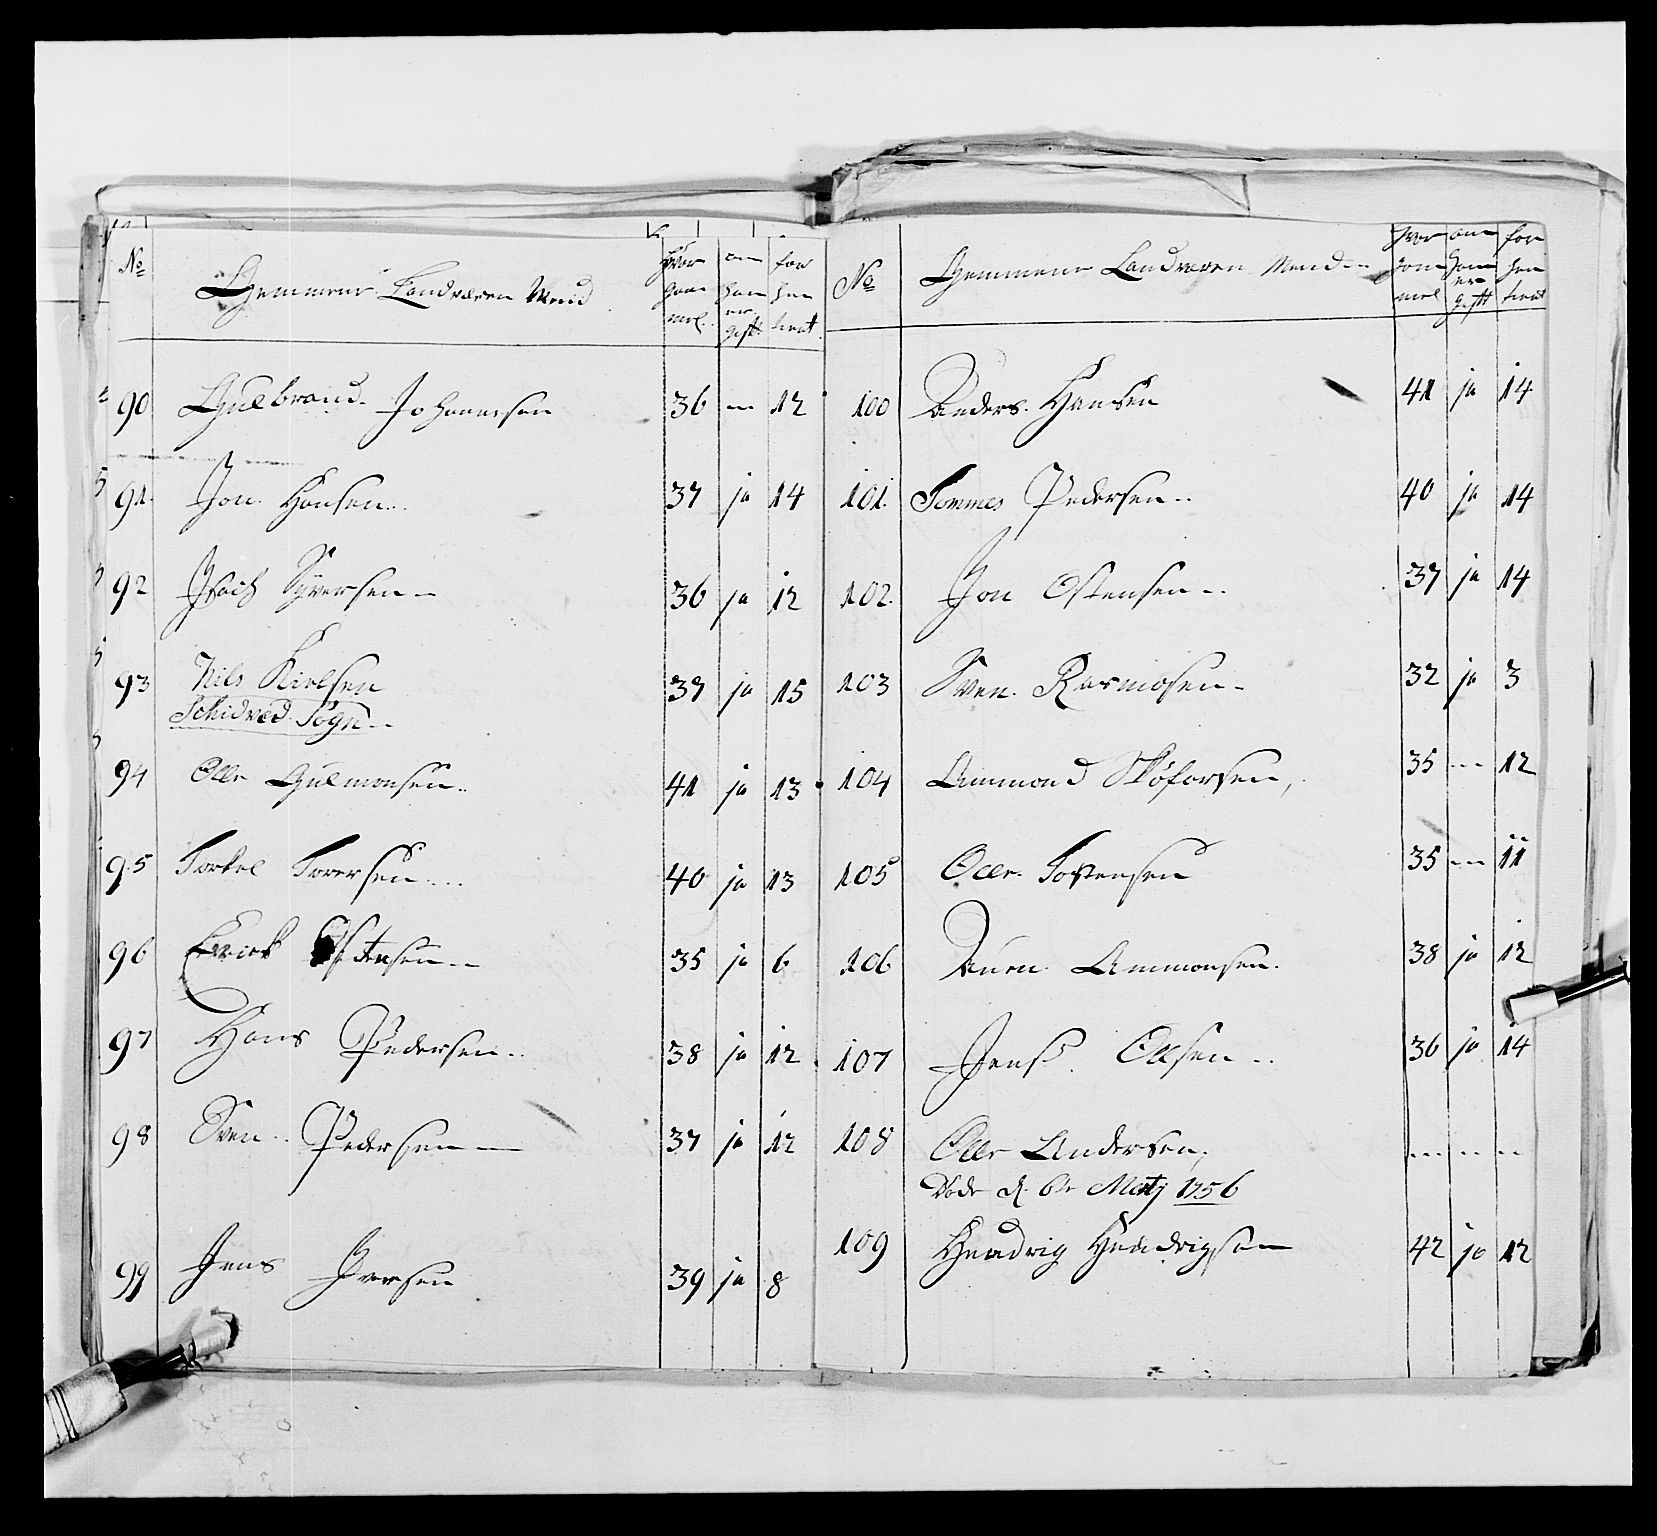 No Gemmene Landværn Mend Hvor gam̄el om han er gift for han tient
90 Gulbrand Johannesen 36 — 12
91 Jon Hansen 37 ja 14
92 Isach Syversen 36 ja 12
93 Nils Kielsen 37 ja 15
Schidved Sogn
94 Olle Gulmonsen 41 ja 13
95 Torkel Torersen 40 ja 13
96 Erick Ostensen 35 ja 6
97 Hans Pedersen 38 ja 12
98 Sven Pedersen 37 ja 12
99 Jens Iversen 39 ja 8
No Gemmene Landværn Mend hvor gam̄el om han er gift for han tient
100 Anders Hansen 41 ja 14
101 Tommes Pedersen 40 ja 14
102 Jon Ostensen 37 ja 14
103 Sven Rasmosen 32 ja 3
104 Ammond 35 — 12
105 Olle Tostensen 35 — 11
106 Auen Ammonsen 38 ja 12
107 Jens Ollsen 36 ja 14
108 Olle Andersen — — —
Døde d. 6te Martj 1756
109 Hendrig Hendrigsen 42 ja 12